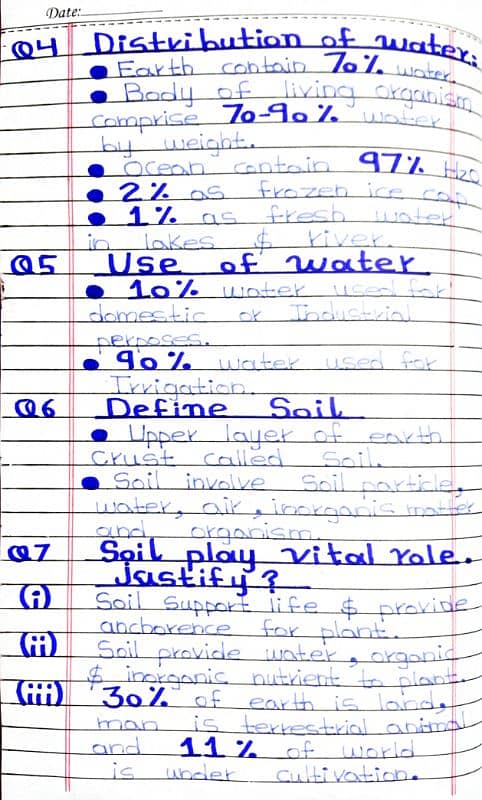 Date:
Q4 Distribution of water:
• Earth contain 70% water.
• Body of living organism
comprise 70-90% water
by weight.
• Ocean contain 97% H2O
• 2% as frozen ice cap
• 1% as fresh water
in lakes $ river.
Q5 Use of water
• 10% water used for
domestic or Industrial
perposes.
• 90% water used for
Irrigation.
Q6 Define Soil
• Upper layer of earth
crust called soil.
• Soil involve soil particle,
water, air, inorganis matter
and organism.
Q7 Soil play vital role.
Justify?
(i) Soil support life $ provide
anchorence for plant.
(ii) Soil provide water, organic
$ inorganic nutrient to plant.
(iii) 30% of earth is land,
man is terrestrial animal
and 11% of world
is under cultivation.